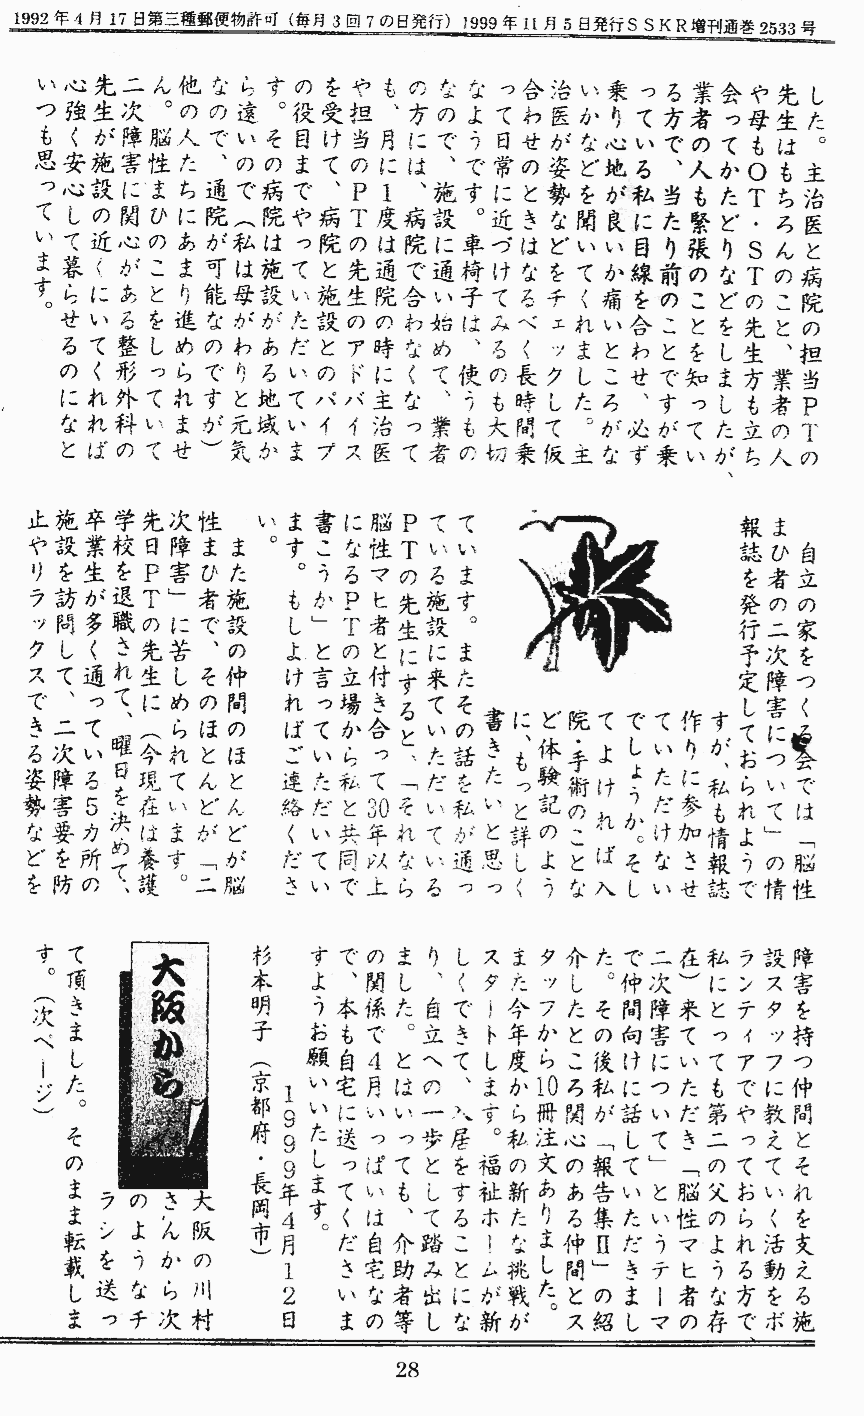 1992年4月17日第三種郵便物許可（毎月3回7の日発行）1999年11月5日発行ＳＳＫＲ増刊通巻2533号
した。主治医と病院の担当ＰＴの
先生はもちろんのこと、業者の人
や母もＯＴ・ＳＴの先生方も立ち
会ってかたどりなどをしましたが、
業者の人も緊張のことを知ってい
る方で、当たり前のことですが乗
っている私に目線を合わせ、必ず
乗り心地が良いか痛いところがな
いかなどを聞いてくれました。主
治医が姿勢などをチェックして仮
合わせのときはなるべく長時間乗
って日常に近づけてみるのも大切
なようです。車椅子は、使うもの
なので、施設に通い始めて、業者
の方には、病院で合わなくなって
も、月に１度は通院の時に主治医
や担当のＰＴの先生のアドバイス
を受けて、病院と施設とのパイプ
の役目までやっていただいていま
す。その病院は施設がある地域か
ら遠いので（私は母がわりと元気
なので、通院が可能なのですが）
他の人たちにあまり進められませ
ん。脳性まひのことをしっていて
二次障害に関心がある整形外科の
先生が施設の近くにいてくれれば
心強く安心して暮らせるのになと
いつも思っています。
自立の家をつくる会では「脳性
まひ者の二次障害について」の情
報誌を発行予定しておられようで
すが、私も情報誌
作りに参加させ
ていただけない
でしょうか。そし
てよければ入
院・手術のことな
ど体験記のよう
に、もっと詳しく
書きたいと思っ
ています。またその話を私が通っ
ている施設に来ていただいている
ＰＴの先生にすると、「それなら
脳性マヒ者と付き合って30年以上
になるＰＴの立場から私と共同で
書こうか」と言っていただいてい
ます。もしよければご連絡くださ
い。
また施設の仲間のほとんどが脳
性まひ者で、そのほとんどが「二
次障害」に苦しめられています。
先日ＰＴの先生に（今現在は養護
学校を退職されて、曜日を決めて、
卒業生が多く通っている５カ所の
施設を訪問して、二次障害要を防
止やリラックスできる姿勢などを
障害を持つ仲間とそれを支える施
設スタッフに教えていく活動をボ
ランティアでやっておられる方で、
私にとっても第二の父のような存
在）来ていただき「脳性マヒ者の
二次障害について」というテーマ
で仲間向けに話していただきまし
た。その後私が「報告集Ⅱ」の紹
介したところ関心のある仲間とス
タッフから10冊注文ありました。
また今年度から私の新たな挑戦が
スタートします。福祉ホームが新
しくできて、入居をすることにな
り、自立への一歩として踏み出し
ました。とはいっても、介助者等
の関係で４月いっぱいは自宅なの
で、本も自宅に送ってくださいま
すようお願いいたします。
１９９９年４月１２日
杉本明子（京都府・長岡市）
大阪から
大阪の川村
さんから次
のようなチ
ラシを送っ
て頂きました。そのまま転載しま
す。（次ページ）
28